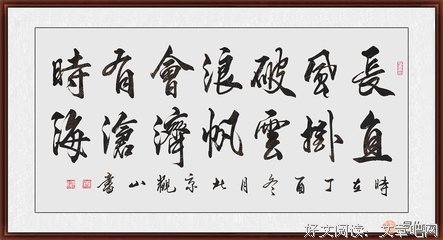 長風破浪會有時
直掛雲帆濟滄海
時在丁酉冬月於京觀山書
好文阅读，文章吧网